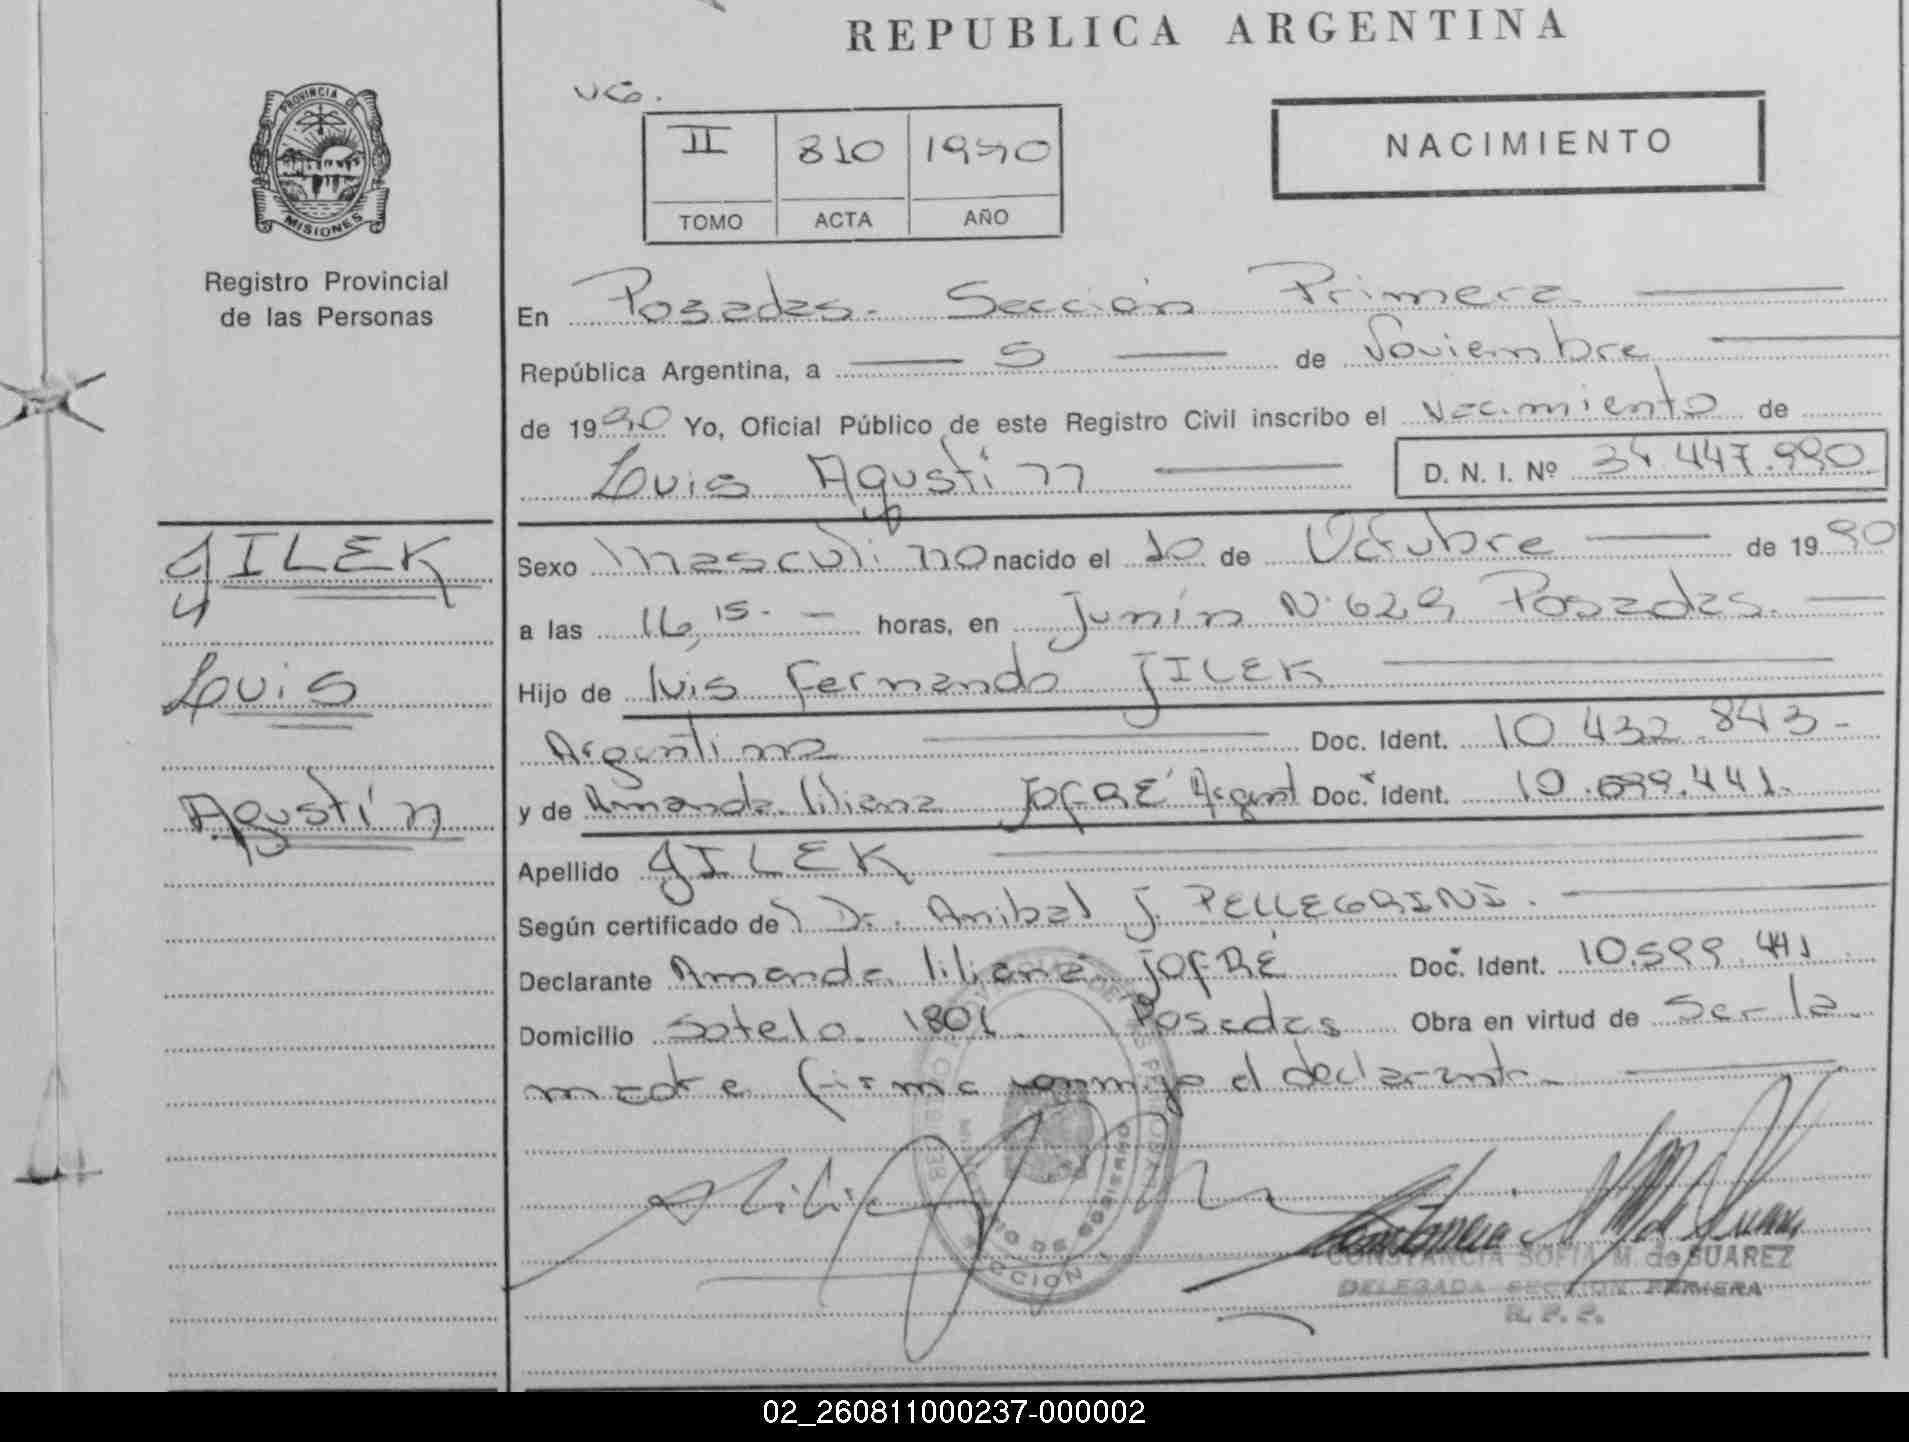 REPUBLICA ARGENTINA
PROVINCIA DE
MISIONES
Registro Provincial
de las Personas
II 810 1990
TOMO ACTA AÑO
NACIMIENTO
En Posadas. Sección Primera
República Argentina, a 5 de Noviembre
de 1990 Yo, Oficial Público de este Registro Civil inscribo el Nacimiento de
Luis Agustín D. N. I. Nº 34.447.990
JILEK
Luis
Agustín
Sexo Masculino nacido el 10 de Octubre de 1990
a las 16,15.- horas, en Junín Nº 629 Posadas.
Hijo de Luis Fernando JILEK
Argentina Doc. Ident. 10.432.843.-
y de Amanda Liliana JOFRÉ Argent Doc. Ident. 10.699.441.
Apellido JILEK
Según certificado del Dr. Anibal J. PELLEGRINI.
Declarante Amanda Liliana JOFRÉ Doc. Ident. 10.599.441
Domicilio Sotelo 1801 Posadas Obra en virtud de Ser la
madre firma conmigo el declarante.
CONSTANCIA SOFIA M. de SUAREZ
DELEGADA SECCION PRIMERA
R. P. P.
SECCION
02_260811000237-000002